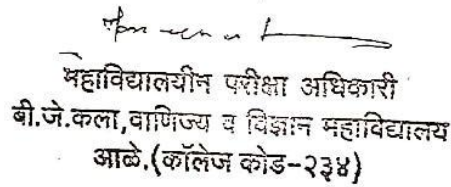 महाविद्यालयीन परीक्षा अधिकारी
बी.जे.कला,वाणिज्य व विज्ञान महाविद्यालय
आळे.(कॉलेज कोड-२३४)